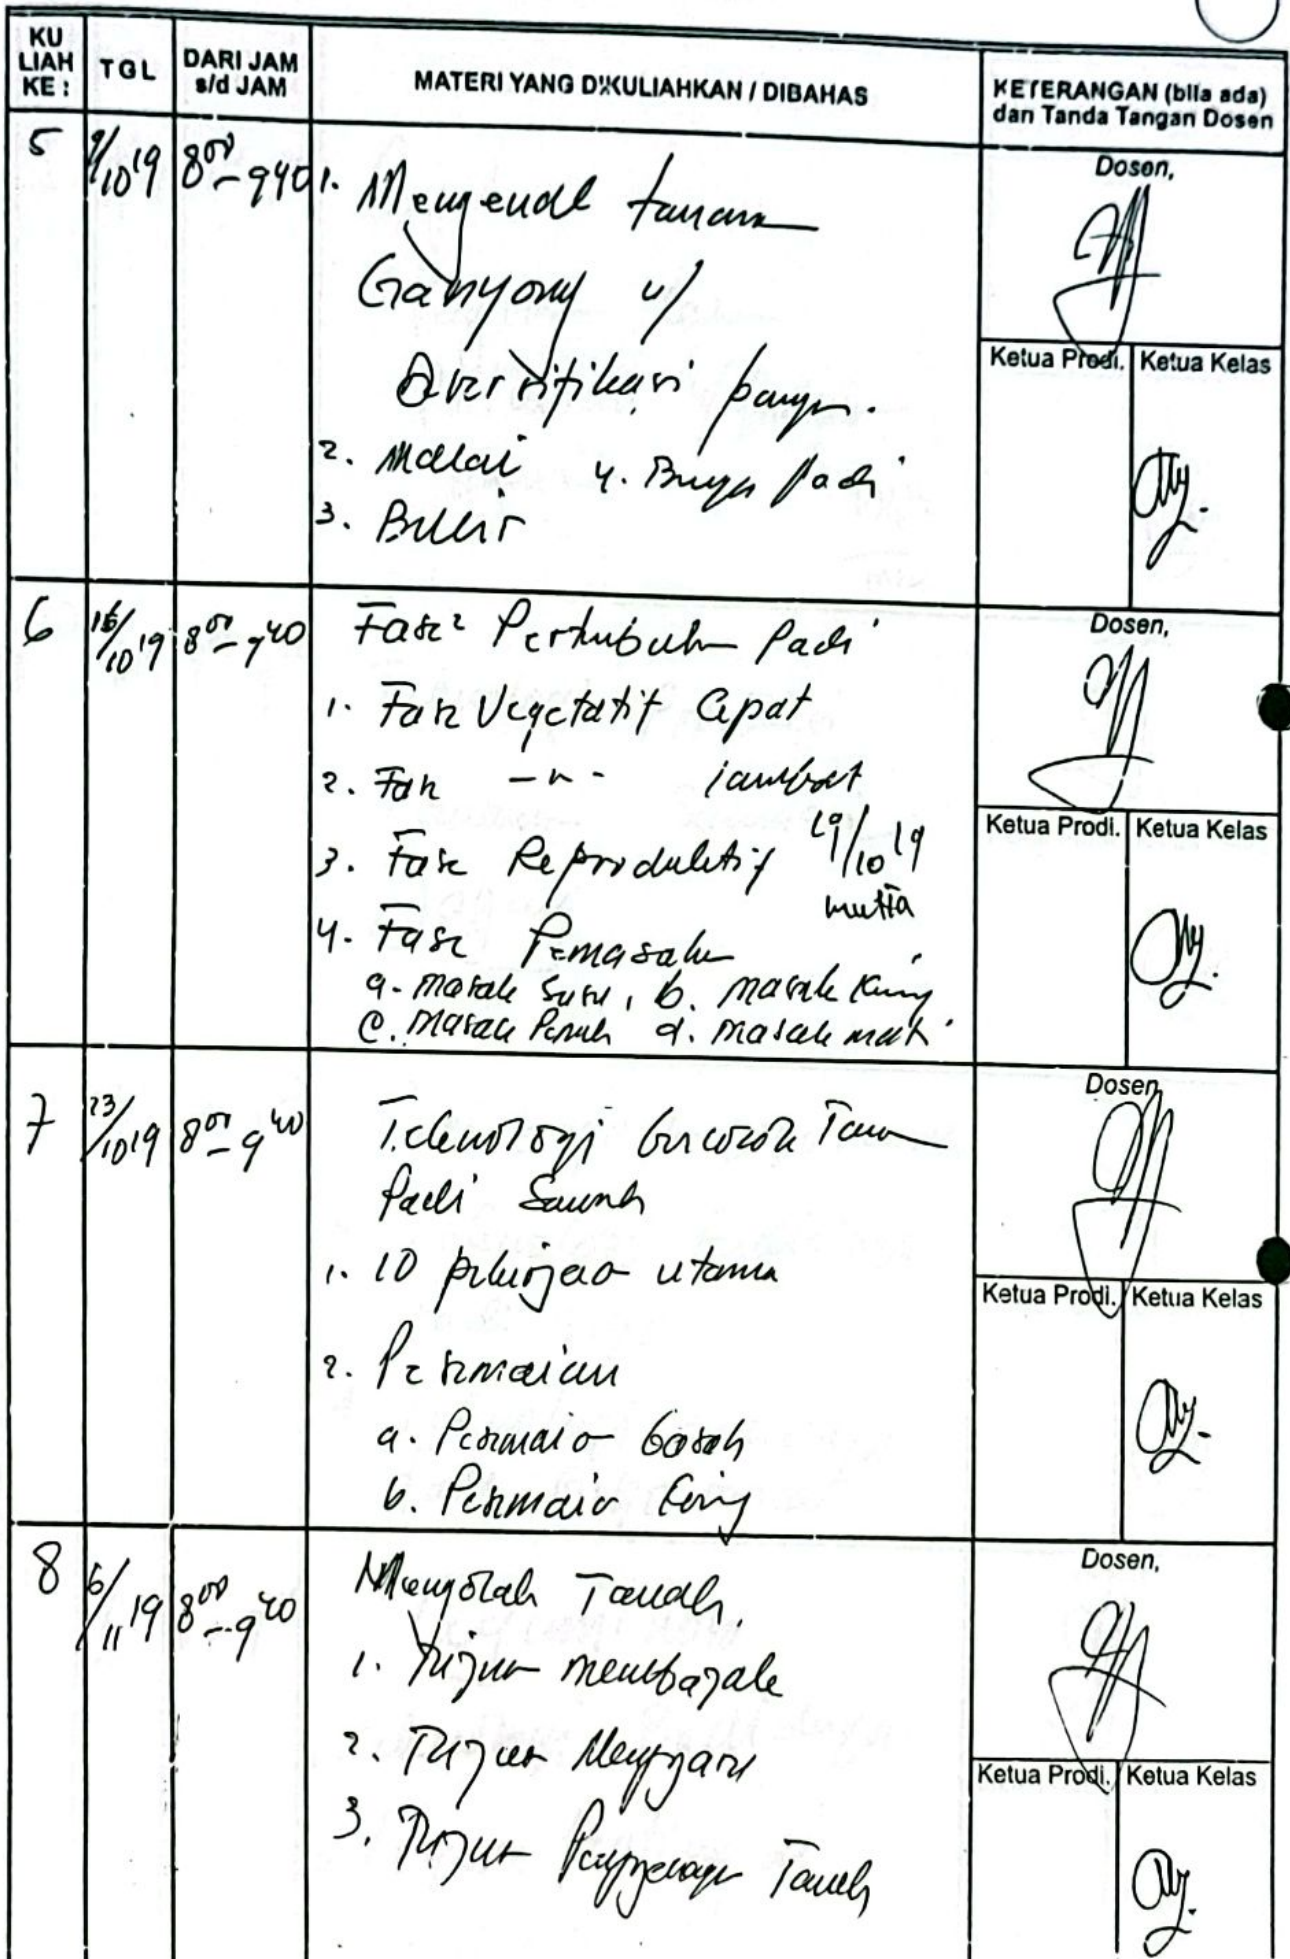 KU LIAH KE :
TGL
DARI JAM s/d JAM
MATERI YANG DIKULIAHKAN / DIBAHAS
KETERANGAN (bila ada) dan Tanda Tangan Dosen
5
9/10 19
8 00 - 9 40
1. Mengenal tanam
Ganyong u/
Diversifikasi pangan.
2. Malai 4. Bunga Padi
3. Bulir
Dosen,
Ketua Prodi. Ketua Kelas
6
16/10 19
8 00 - 9 40
Fase2 Pertumbuhan Padi
1. Fase Vegetatif Cepat
2. Fase -"- lambat
3. Fase Reproduktif
19/10 19
4. Fase Pemasakan
a. masak susu, b. masak kuning
c. masak Penuh d. masak mati
Dosen,
Ketua Prodi. Ketua Kelas
7
23/10 19
8 00 - 9 40
Teknologi bercocok Tanam
Padi Sawah
1. 10 pekerjaan utama
2. Persemaian
a. Persemaian basah
b. Persemaian kering
Dosen,
Ketua Prodi. Ketua Kelas
8
6/11 19
8 00 - 9 40
Mengolah Tanah,
1. Tujuan membajak
2. Tujuan Menggaru
3. Tujuan Penggenangan Tanah
Dosen,
Ketua Prodi. Ketua Kelas